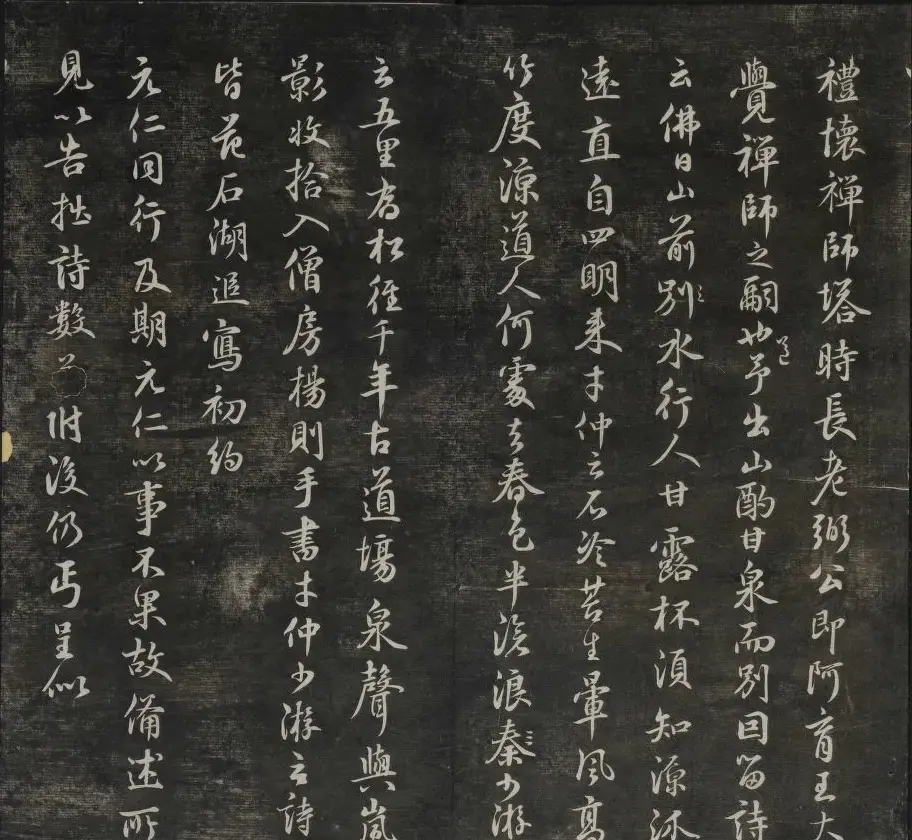 禮懷禪師塔時長老弼公即阿育王大
覺禪師之嗣也予出山酌甘泉而別因留詩
云佛日山前別水行人甘露杯須知源派
遠直自四明来才仲云石冷苔生暈風高
竹度涼道人何處去春色半滄浪秦少游
云五里为松徑千年古道場泉聲與嵐
影收拾入僧房楊則手書才仲少游之詩
皆苑石湖追寫初約
元仁同行及期元仁以事不果故備述所
見以告拙詩數首附後仍丐呈似